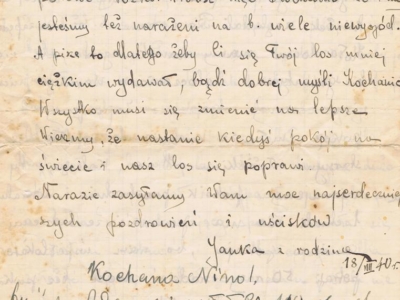 jesteśmy też narażeni na b. wiele niewygód.
A piszę to dlatego żeby Ci się Twój los mniej
ciężkim wydawał, bądź dobrej myśli Kochanie
Wszystko musi się zmienić na lepsze
Wierzmy, że nastanie kiedyś pokój na
świecie i nasz los się poprawi
Narazie zasyłamy Wam moc najserdecznie
szych pozdrowień i uścisków
Janka z rodziną
18/III 40 r.
Kochana Nino!